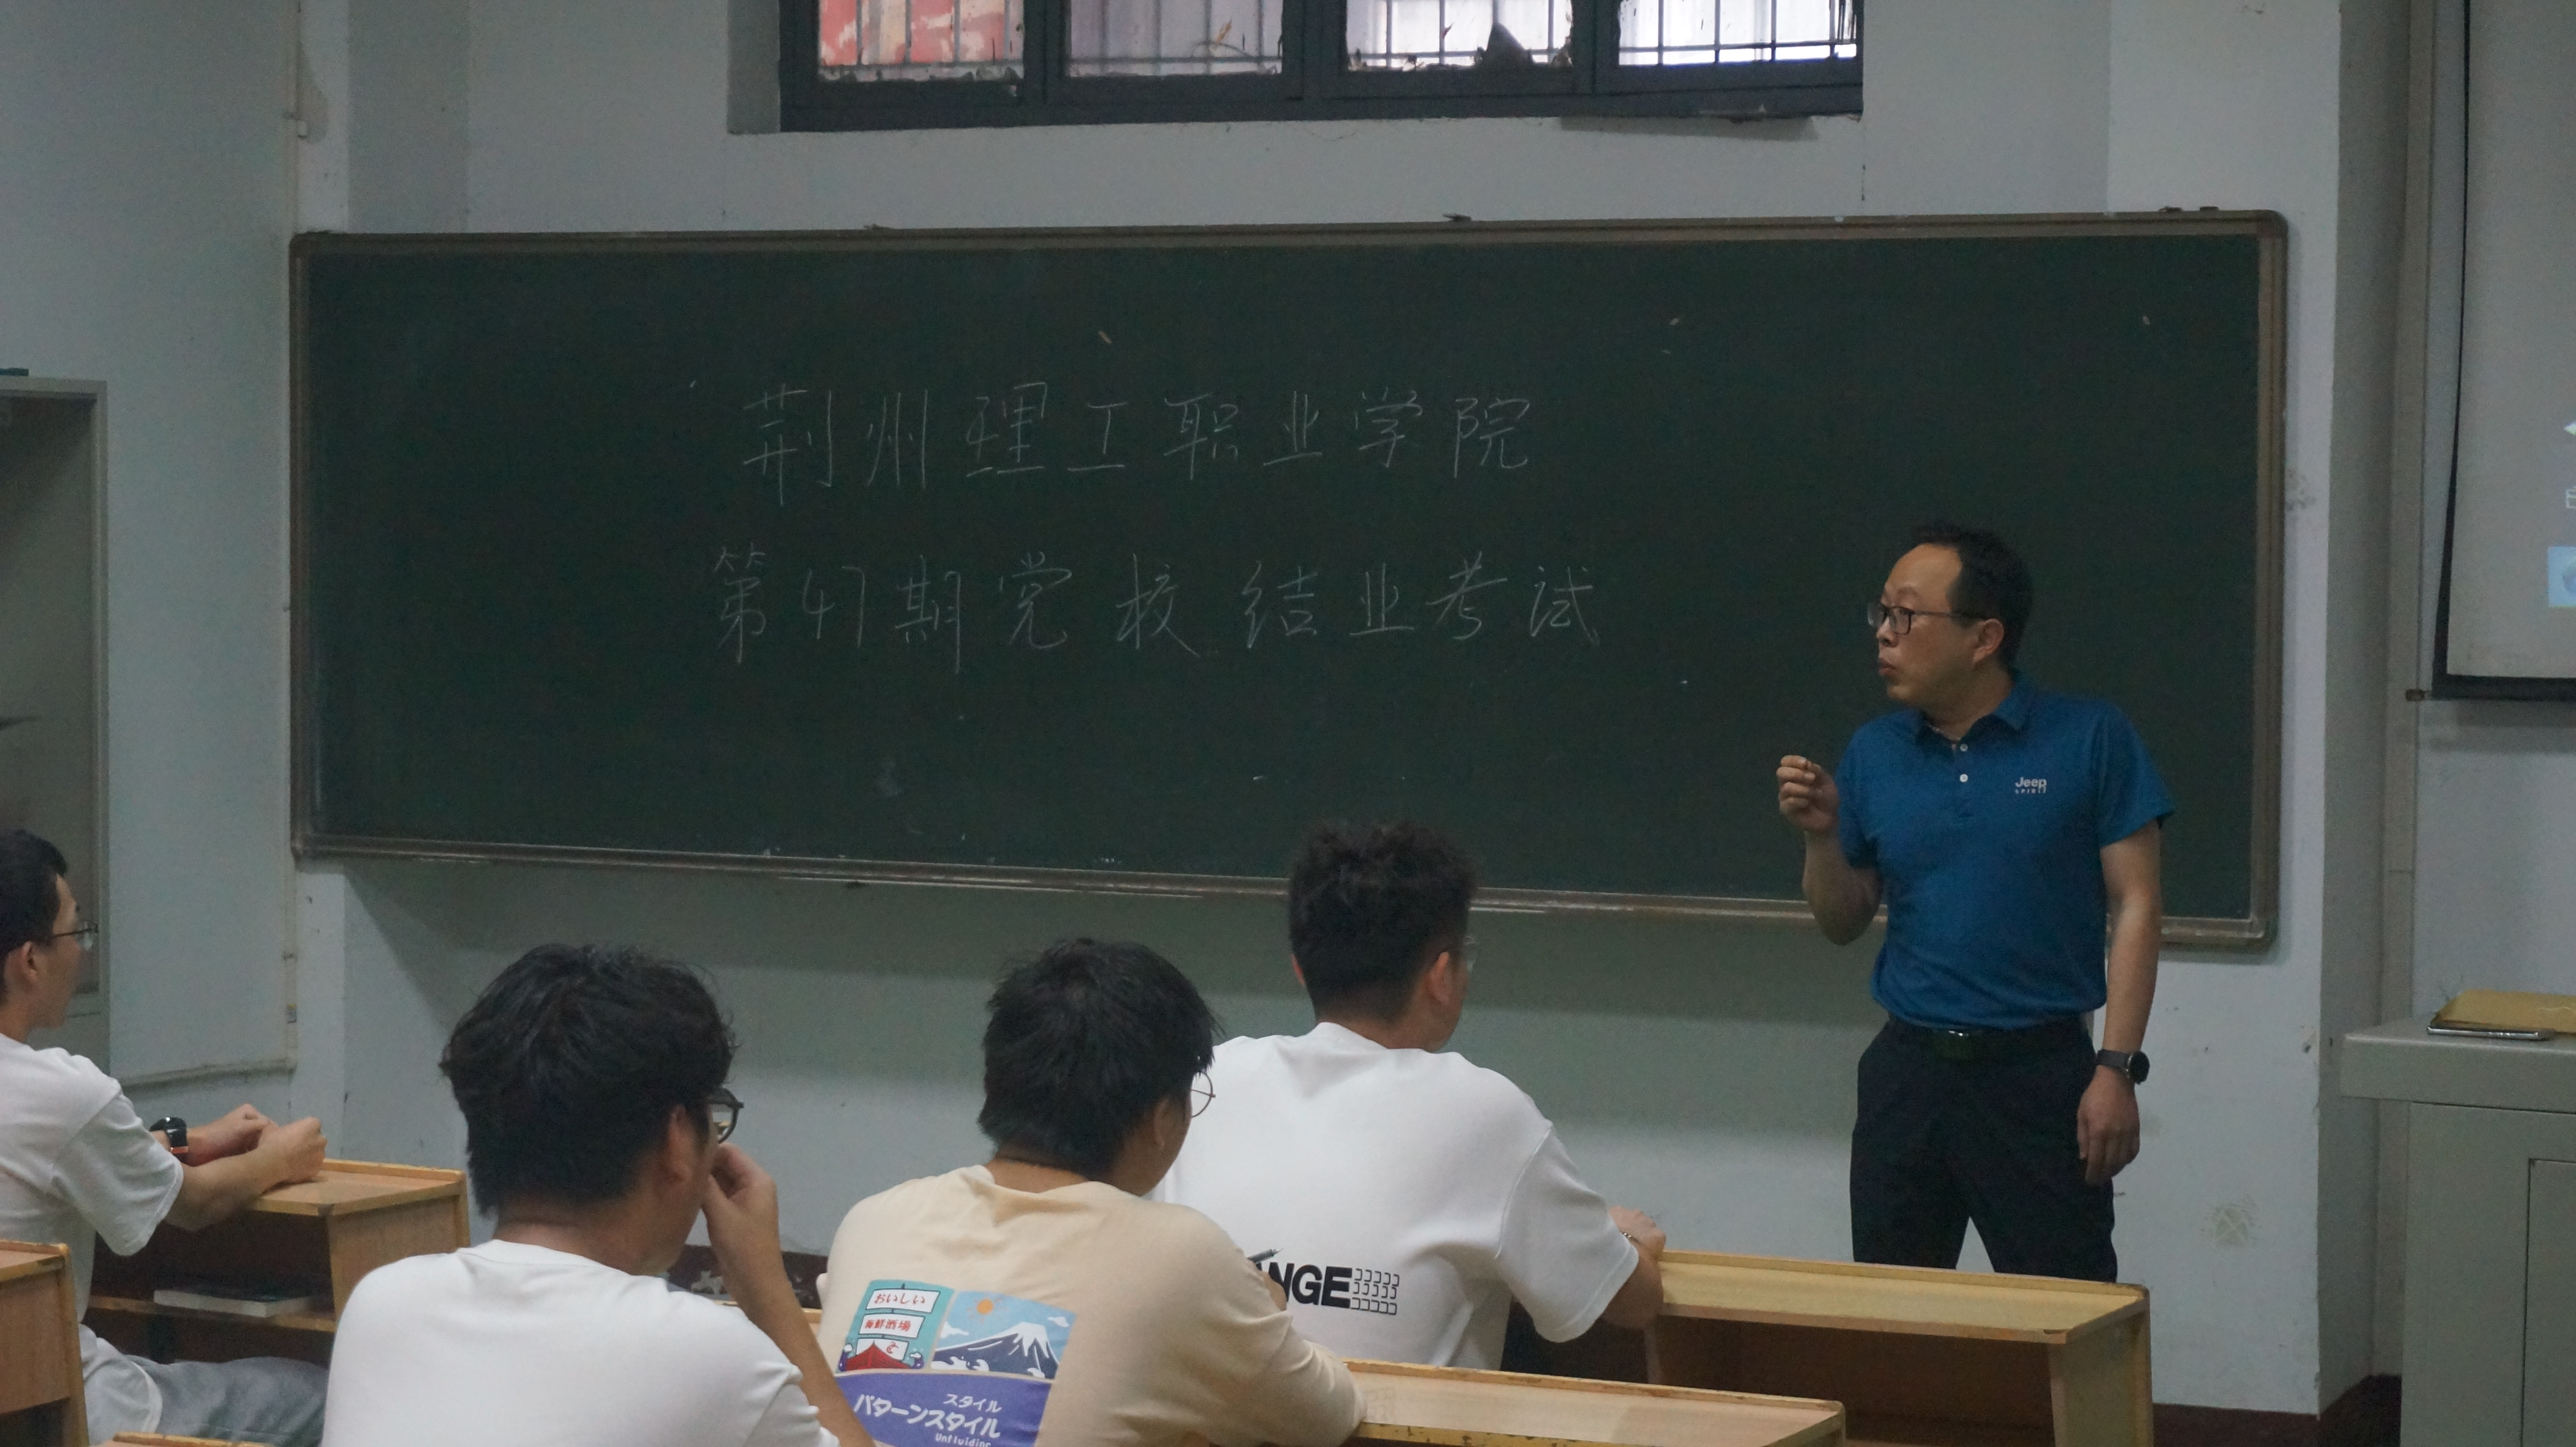 荆州理工职业学院
第47期党校结业考试
Jeep
SPIRIT
NGE
おいしい
海鮮酒場
スタイル
パターンスタイル